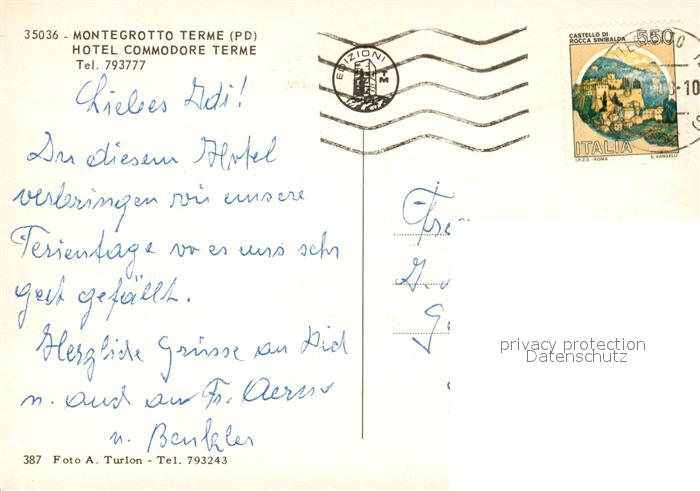 35036 - MONTEGROTTO TERME (PD)
HOTEL COMMODORE TERME
Tel. 793777
EDIZIONI
TM
CASTELLO DI
ROCCA SINIBALDA
550
ITALIA
I.P.Z.S. - ROMA
E. VANGELLI
Liebes Idi!
In diesem Hotel
verbringen wir unsere
Ferientage wo es uns sehr
gut gefällt.
Herzliche Grüsse an Dich
u. auch an Fr.
u.
privacy protection
Datenschutz
387 Foto A. Turlon - Tel. 793243